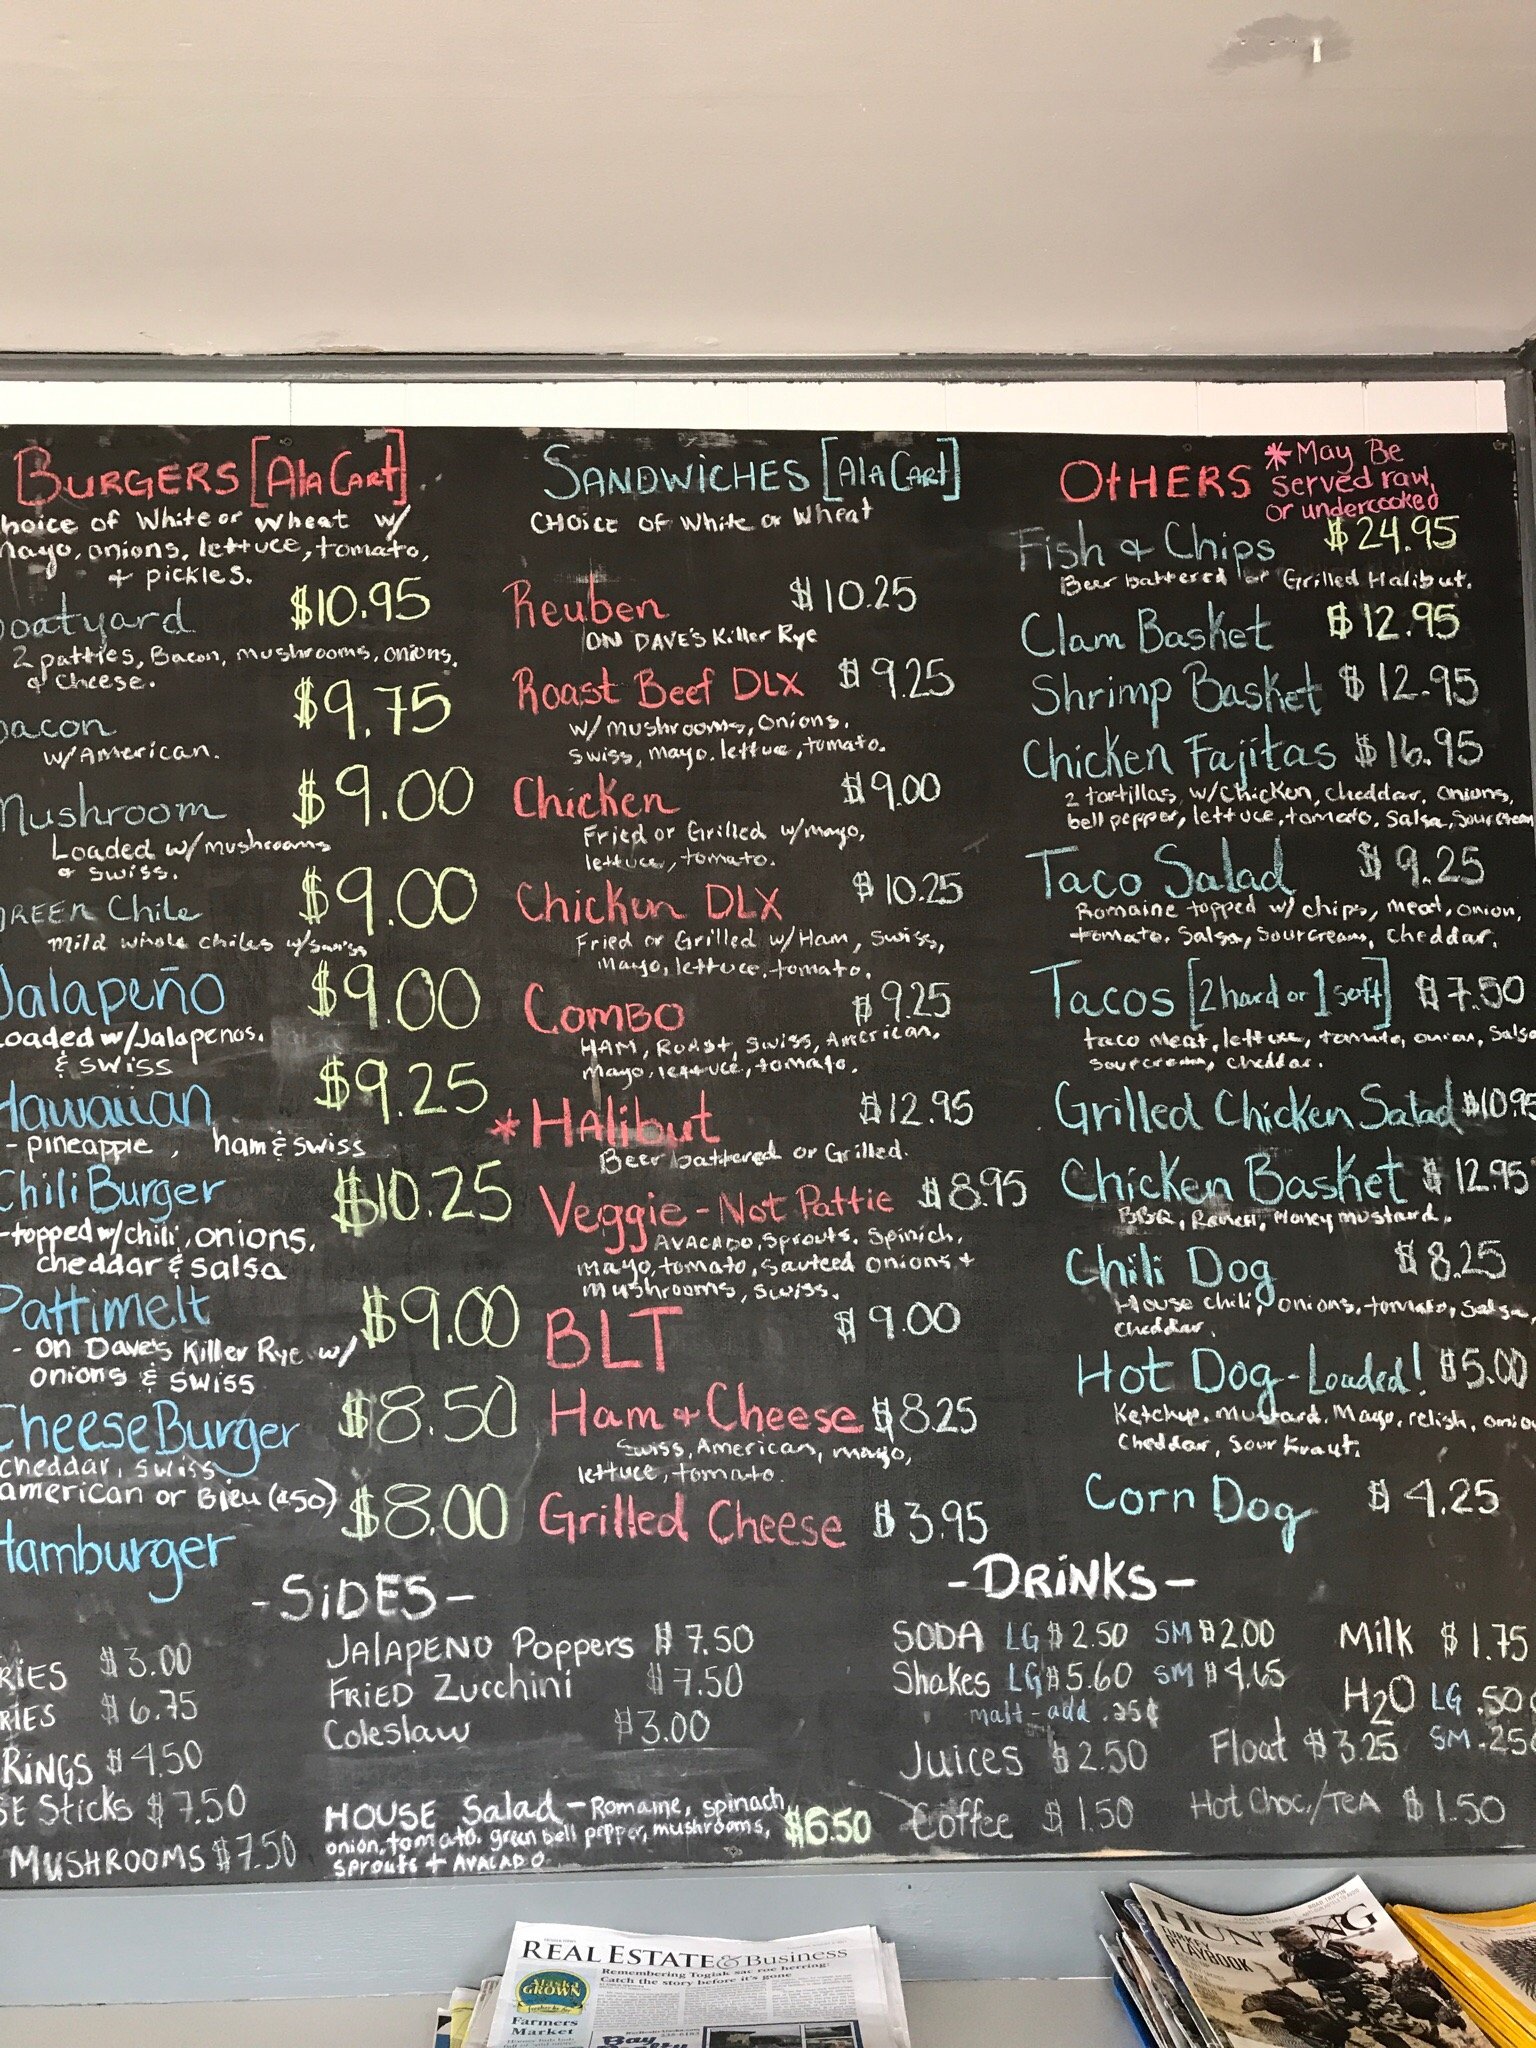 BURGERS [Ala Cart]
hoice of White or Wheat w/
Mayo, onions, lettuce, tomato,
+ pickles.
oatyard $10.95
2 patties, Bacon, mushrooms, onions,
& Cheese.
acon $9.75
w/American.
Mushroom $9.00
Loaded w/ mushrooms
& swiss.
GREEN Chile $9.00
Mild whole chiles w/swiss
Jalapeño $9.00
oaded w/Jalapenos,
& swiss
Hawaiian $9.25
- pineapple, ham & swiss
Chili Burger $10.25
-topped w/chili, onions,
cheddar & salsa
Pattimelt $9.00
- on Dave's Killer Rye w/
onions & swiss
CheeseBurger $8.50
cheddar, swiss
american or Bleu (¢50)
Hamburger $8.00
SANDWICHES [Ala Cart]
CHOICE of White or Wheat
Reuben $10.25
ON DAVE'S Killer Rye
Roast Beef DLX $9.25
w/mushrooms, onions,
swiss, mayo, lettuce, tomato.
Chicken $9.00
Fried or Grilled w/mayo,
lettuce, tomato.
Chicken DLX $10.25
Fried or Grilled w/Ham, swiss,
Mayo, lettuce, tomato.
Combo $9.25
HAM, Roast, Swiss, American,
Mayo, lettuce, tomato.
* HAlibut $12.95
Beer battered or Grilled.
Veggie - Not Pattie $8.95
AVACADO, Sprouts, Spinich,
mayo, tomato, sauteed onions +
mushrooms, swiss.
BLT $9.00
Ham + Cheese $8.25
Swiss, American, mayo,
lettuce, tomato.
Grilled Cheese $3.95
OtHERS
*May Be
served raw,
or undercooked
Fish & Chips $24.95
Beer battered or Grilled Halibut.
Clam Basket $12.95
Shrimp Basket $12.95
Chicken Fajitas $16.95
2 tortillas w/chicken, cheddar, onions,
bell pepper, lettuce, tomato, salsa, sour cream
Taco Salad $9.25
Romaine topped w/ chips, meat, onion,
tomato, salsa, sourcream, cheddar.
Tacos [2 hard or 1 soft] $7.50
taco meat, lettuce, tomato, onion, salsa
sourcream, cheddar.
Grilled Chicken Salad $10.95
Chicken Basket $12.95
BBQ, Ranch, Honey mustard.
Chili Dog $8.25
House chili, onions, tomato, salsa,
Cheddar.
Hot Dog - Loaded! $5.00
Ketchup, mustard, Mayo, relish, onio
Cheddar, Sour Kraut.
Corn Dog $4.25
-SiDES-
RIES $3.00
RIES $6.75
RiNGS $4.50
SE Sticks $7.50
MUSHROOMS $7.50
JALAPENO Poppers $7.50
FRIED Zucchini $7.50
Coleslaw $3.00
HOUSE Salad - Romaine, spinach, $6.50
onion, tomato, green bell pepper, mushrooms,
sprouts + AVACADO
-DRiNKS-
SODA LG $2.50 SM $2.00
Shakes LG $5.60 SM $4.65
malt - add .25¢
Juices $2.50
Coffee $1.50
Milk $1.75
H2O LG .50¢
SM .25¢
Float $3.25
Hot Choc./TEA $1.50
REAL ESTATE & Business
Remembering Togiak sac roe herring:
Catch the story before it's gone
Alaska
GROWN
Farmers
Market
Bay
HUNTING
TURKEY
PLAYBOOK